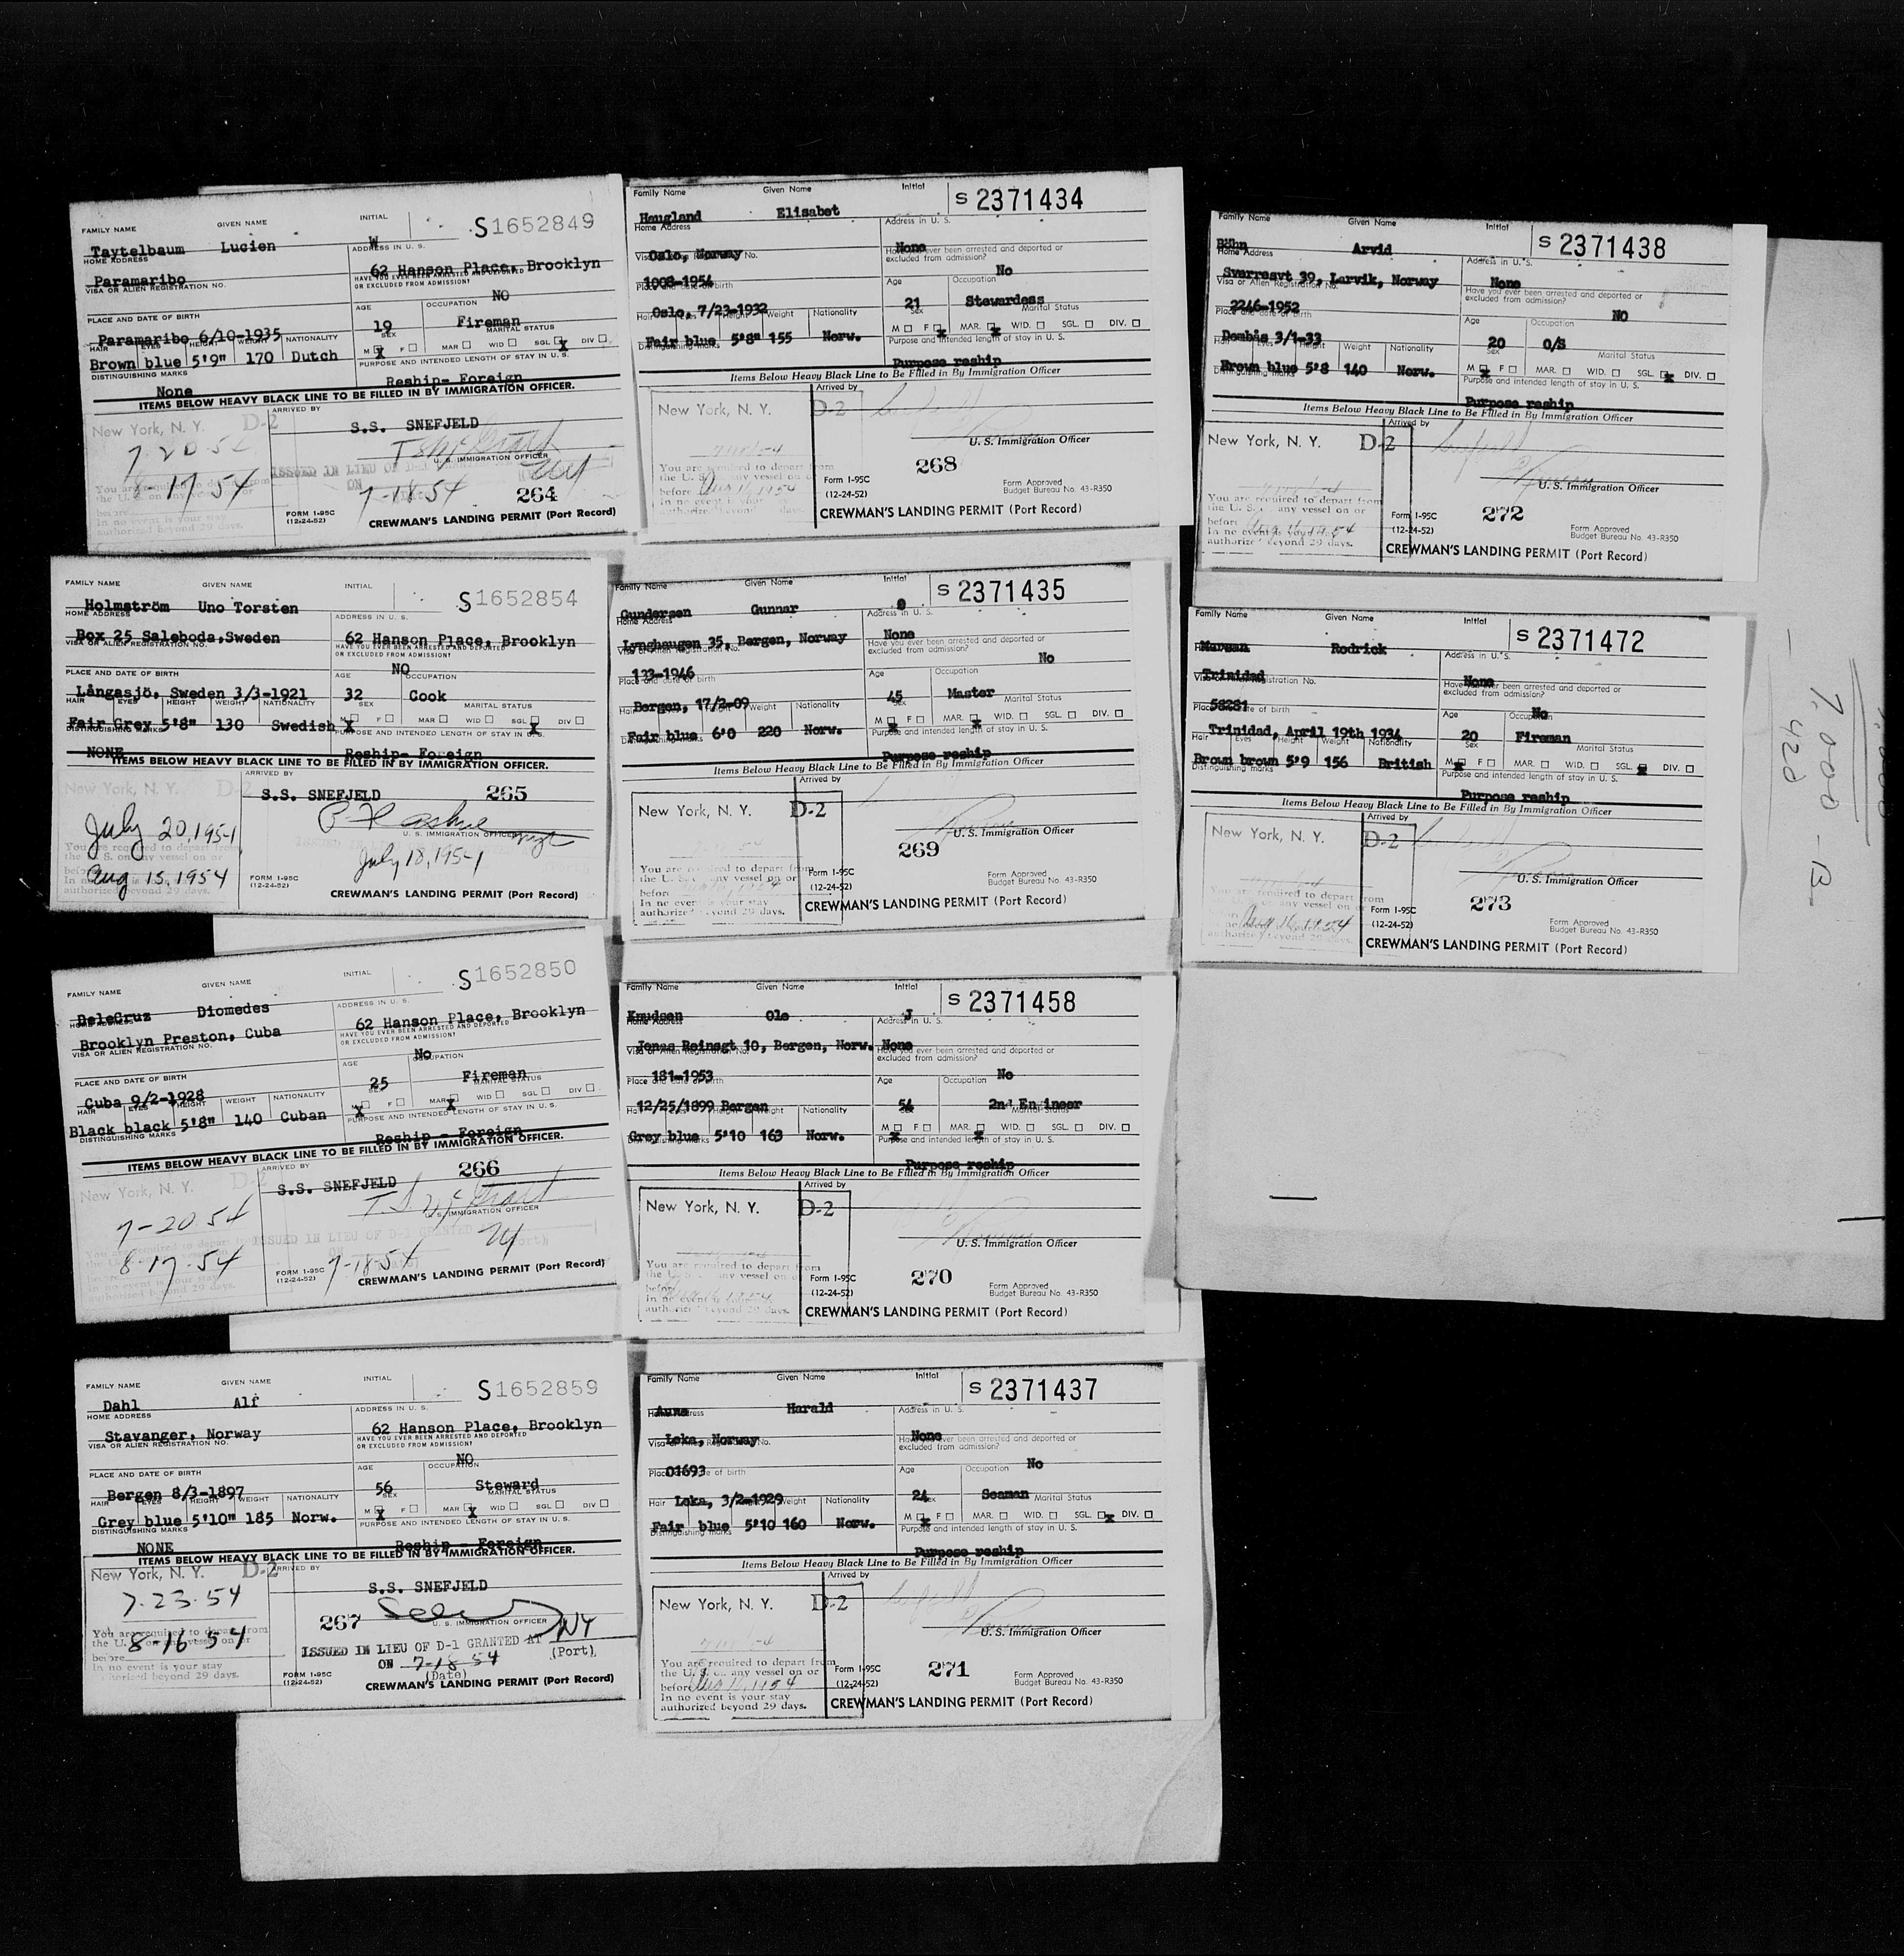 FAMILY NAME GIVEN NAME INITIAL S1652849
Taytelbaum Lucien W
HOME ADDRESS ADDRESS IN U. S.
Paramaribo 62 Hanson Place, Brooklyn
VISA OR ALIEN REGISTRATION NO. HAVE YOU EVER BEEN ARRESTED AND DEPORTED
OR EXCLUDED FROM ADMISSION?
NO
PLACE AND DATE OF BIRTH AGE OCCUPATION
Paramaribo 6/10-1935 19 Fireman
HAIR EYES HEIGHT WEIGHT NATIONALITY SEX MARITAL STATUS
Brown blue 5'9" 170 Dutch M X F MAR WID SGL X DIV
DISTINGUISHING MARKS PURPOSE AND INTENDED LENGTH OF STAY IN U. S.
None Reship- Foreign
ITEMS BELOW HEAVY BLACK LINE TO BE FILLED IN BY IMMIGRATION OFFICER.
New York, N. Y. D-2 ARRIVED BY
S.S. SNEFJELD
7 20 54
U. S. IMMIGRATION OFFICER
ISSUED IN LIEU OF D-1
8-17 54 ON 7-18-54 264
FORM I-95C
(12-24-52) CREWMAN'S LANDING PERMIT (Port Record)
FAMILY NAME GIVEN NAME INITIAL S1652854
Holmström Uno Torsten
HOME ADDRESS ADDRESS IN U. S.
Box 25 Saleboda,Sweden 62 Hanson Place, Brooklyn
VISA OR ALIEN REGISTRATION NO. HAVE YOU EVER BEEN ARRESTED AND DEPORTED
OR EXCLUDED FROM ADMISSION?
NO
PLACE AND DATE OF BIRTH AGE OCCUPATION
Långasjö, Sweden 3/3-1921 32 Cook
HAIR EYES HEIGHT WEIGHT NATIONALITY SEX MARITAL STATUS
Fair Grey 5'8" 130 Swedish M X F MAR WID SGL X DIV
DISTINGUISHING MARKS PURPOSE AND INTENDED LENGTH OF STAY IN U. S.
NONE Reship- Foreign
ITEMS BELOW HEAVY BLACK LINE TO BE FILLED IN BY IMMIGRATION OFFICER.
New York, N. Y. D-2 ARRIVED BY
S.S. SNEFJELD 265
July 20, 1954
U. S. IMMIGRATION OFFICER
July 18, 1954
Aug 15, 1954
FORM I-95C
(12-24-52) CREWMAN'S LANDING PERMIT (Port Record)
FAMILY NAME GIVEN NAME INITIAL S1652850
DeleCruz Diomedes
HOME ADDRESS ADDRESS IN U. S.
Brooklyn Preston, Cuba 62 Hanson Place, Brooklyn
VISA OR ALIEN REGISTRATION NO. HAVE YOU EVER BEEN ARRESTED AND DEPORTED
OR EXCLUDED FROM ADMISSION?
No
PLACE AND DATE OF BIRTH AGE OCCUPATION
Cuba 9/2-1928 25 Fireman
HAIR EYES HEIGHT WEIGHT NATIONALITY SEX MARITAL STATUS
Black black 5'8" 140 Cuban M X F MAR X WID SGL DIV
DISTINGUISHING MARKS PURPOSE AND INTENDED LENGTH OF STAY IN U. S.
Reship - Foreign
ITEMS BELOW HEAVY BLACK LINE TO BE FILLED IN BY IMMIGRATION OFFICER.
New York, N. Y. D-2 ARRIVED BY 266
S.S. SNEFJELD
7-20 54
U. S. IMMIGRATION OFFICER
ISSUED IN LIEU OF D-1 GRANTED
8-17-54 7-18-54
FORM I-95C
(12-24-52) CREWMAN'S LANDING PERMIT (Port Record)
FAMILY NAME GIVEN NAME INITIAL S1652859
Dahl Alf
HOME ADDRESS ADDRESS IN U. S.
Stavanger, Norway 62 Hanson Place, Brooklyn
VISA OR ALIEN REGISTRATION NO. HAVE YOU EVER BEEN ARRESTED AND DEPORTED
OR EXCLUDED FROM ADMISSION?
NO
PLACE AND DATE OF BIRTH AGE OCCUPATION
Bergen 8/3-1897 56 Steward
HAIR EYES HEIGHT WEIGHT NATIONALITY SEX MARITAL STATUS
Grey blue 5'10" 185 Norw. M X F MAR X WID SGL DIV
DISTINGUISHING MARKS PURPOSE AND INTENDED LENGTH OF STAY IN U. S.
NONE Reship - Foreign
ITEMS BELOW HEAVY BLACK LINE TO BE FILLED IN BY IMMIGRATION OFFICER.
New York, N. Y. D-2 ARRIVED BY
S.S. SNEFJELD
7-23-54
267 U. S. IMMIGRATION OFFICER
You are required to depart from
the U. S. on any vessel on or
before 8-16 54
In no event is your stay
authorized beyond 29 days.
ISSUED IN LIEU OF D-1 GRANTED AT NY
(Port)
ON 7-18 54
(Date)
FORM I-95C
(12-24-52) CREWMAN'S LANDING PERMIT (Port Record)
Family Name Given Name Initial S 2371434
Haugland Elisabet
Home Address Address in U. S.
Oslo, Norway None
Visa or Alien Registration No. Have you ever been arrested and deported or
excluded from admission?
1008-1954 No
Place and date of birth Age Occupation
Oslo, 7/23-1932 21 Stewardess
Hair Eyes Height Weight Nationality Sex Marital Status
Fair blue 5'8" 155 Norw. M F X MAR. X WID. SGL. DIV.
Distinguishing marks Purpose and intended length of stay in U. S.
Purpose reship
Items Below Heavy Black Line to Be Filled in By Immigration Officer
New York, N. Y. D-2 Arrived by
U. S. Immigration Officer
268
You are required to depart from
the U. S. on any vessel on or
before Aug 16, 1954
Form I-95C
(12-24-52)
Form Approved
Budget Bureau No. 43-R350
CREWMAN'S LANDING PERMIT (Port Record)
Family Name Given Name Initial S 2371435
Gundersen Gunnar O
Home Address Address in U. S.
Lynghaugen 35, Bergen, Norway None
Visa or Alien Registration No. Have you ever been arrested and deported or
excluded from admission?
133-1946 No
Place and date of birth Age Occupation
Bergen, 17/2-09 45 Master
Hair Eyes Height Weight Nationality Sex Marital Status
Fair blue 6'0 220 Norw. M X F MAR. X WID. SGL. DIV.
Distinguishing marks Purpose and intended length of stay in U. S.
Purpose reship
Items Below Heavy Black Line to Be Filled in By Immigration Officer
New York, N. Y. D-2 Arrived by
U. S. Immigration Officer
269
You are required to depart from
the U. S. on any vessel on or
before
In no event is your stay
authorized beyond 29 days.
Form I-95C
(12-24-52)
Form Approved
Budget Bureau No. 43-R350
CREWMAN'S LANDING PERMIT (Port Record)
Family Name Given Name Initial S 2371458
Knudsen Ole J
Home Address Address in U. S.
Jonas Reinsgt 10, Bergen, Norw. None
Visa or Alien Registration No. Have you ever been arrested and deported or
excluded from admission?
181-1953 No
Place and date of birth Age Occupation
12/25/1899 Bergen 54 2nd Engineer
Hair Eyes Height Weight Nationality Sex Marital Status
Grey blue 5'10 163 Norw. M X F MAR. X WID. SGL. DIV.
Distinguishing marks Purpose and intended length of stay in U. S.
Purpose reship
Items Below Heavy Black Line to Be Filled in By Immigration Officer
New York, N. Y. D-2 Arrived by
U. S. Immigration Officer
270
You are required to depart from
the U. S. on any vessel on or
before
In no event is your stay
authorized beyond 29 days.
Form I-95C
(12-24-52)
Form Approved
Budget Bureau No. 43-R350
CREWMAN'S LANDING PERMIT (Port Record)
Family Name Given Name Initial S 2371437
Aune Harald
Home Address Address in U. S.
Leka, Norway None
Visa or Alien Registration No. Have you ever been arrested and deported or
excluded from admission?
01693 No
Place and date of birth Age Occupation
Leka, 3/2-1929 24 Seaman
Hair Eyes Height Weight Nationality Sex Marital Status
Fair blue 5'10 160 Norw. M X F MAR. WID. SGL. X DIV.
Distinguishing marks Purpose and intended length of stay in U. S.
Purpose reship
Items Below Heavy Black Line to Be Filled in By Immigration Officer
New York, N. Y. D-2 Arrived by
U. S. Immigration Officer
271
You are required to depart from
the U. S. on any vessel on or
before Aug 16, 1954
In no event is your stay
authorized beyond 29 days.
Form I-95C
(12-24-52)
Form Approved
Budget Bureau No. 43-R350
CREWMAN'S LANDING PERMIT (Port Record)
Family Name Given Name Initial S 2371438
Böhn Arvid
Home Address Address in U. S.
Sverresvt 39, Larvik, Norway None
Visa or Alien Registration No. Have you ever been arrested and deported or
excluded from admission?
2246-1952 NO
Place and date of birth Age Occupation
Dombås 3/1-33 20 O/S
Hair Eyes Height Weight Nationality Sex Marital Status
Brown blue 5'8 140 Norw. M X F MAR. WID. SGL. X DIV.
Distinguishing marks Purpose and intended length of stay in U. S.
Purpose reship
Items Below Heavy Black Line to Be Filled in By Immigration Officer
New York, N. Y. D-2 Arrived by
U. S. Immigration Officer
272
You are required to depart from
the U. S. on any vessel on or
before Aug 16, 1954
In no event is your stay
authorized beyond 29 days.
Form I-95C
(12-24-52)
Form Approved
Budget Bureau No. 43-R350
CREWMAN'S LANDING PERMIT (Port Record)
Family Name Given Name Initial S 2371472
Rodrick
Address in U. S.
Trinidad None
Visa or Alien Registration No. Have you ever been arrested and deported or
excluded from admission?
58281 No
Place and date of birth Age Occupation
Trinidad, April 19th 1934 20 Fireman
Hair Eyes Height Weight Nationality Sex Marital Status
Brown brown 5'9 156 British M X F MAR. WID. SGL. X DIV.
Distinguishing marks Purpose and intended length of stay in U. S.
Purpose reship
Items Below Heavy Black Line to Be Filled in By Immigration Officer
New York, N. Y. D-2 Arrived by
U. S. Immigration Officer
273
Aug 16, 1954
Form I-95C
(12-24-52)
Form Approved
Budget Bureau No. 43-R350
CREWMAN'S LANDING PERMIT (Port Record)
7,000 - B
- 420